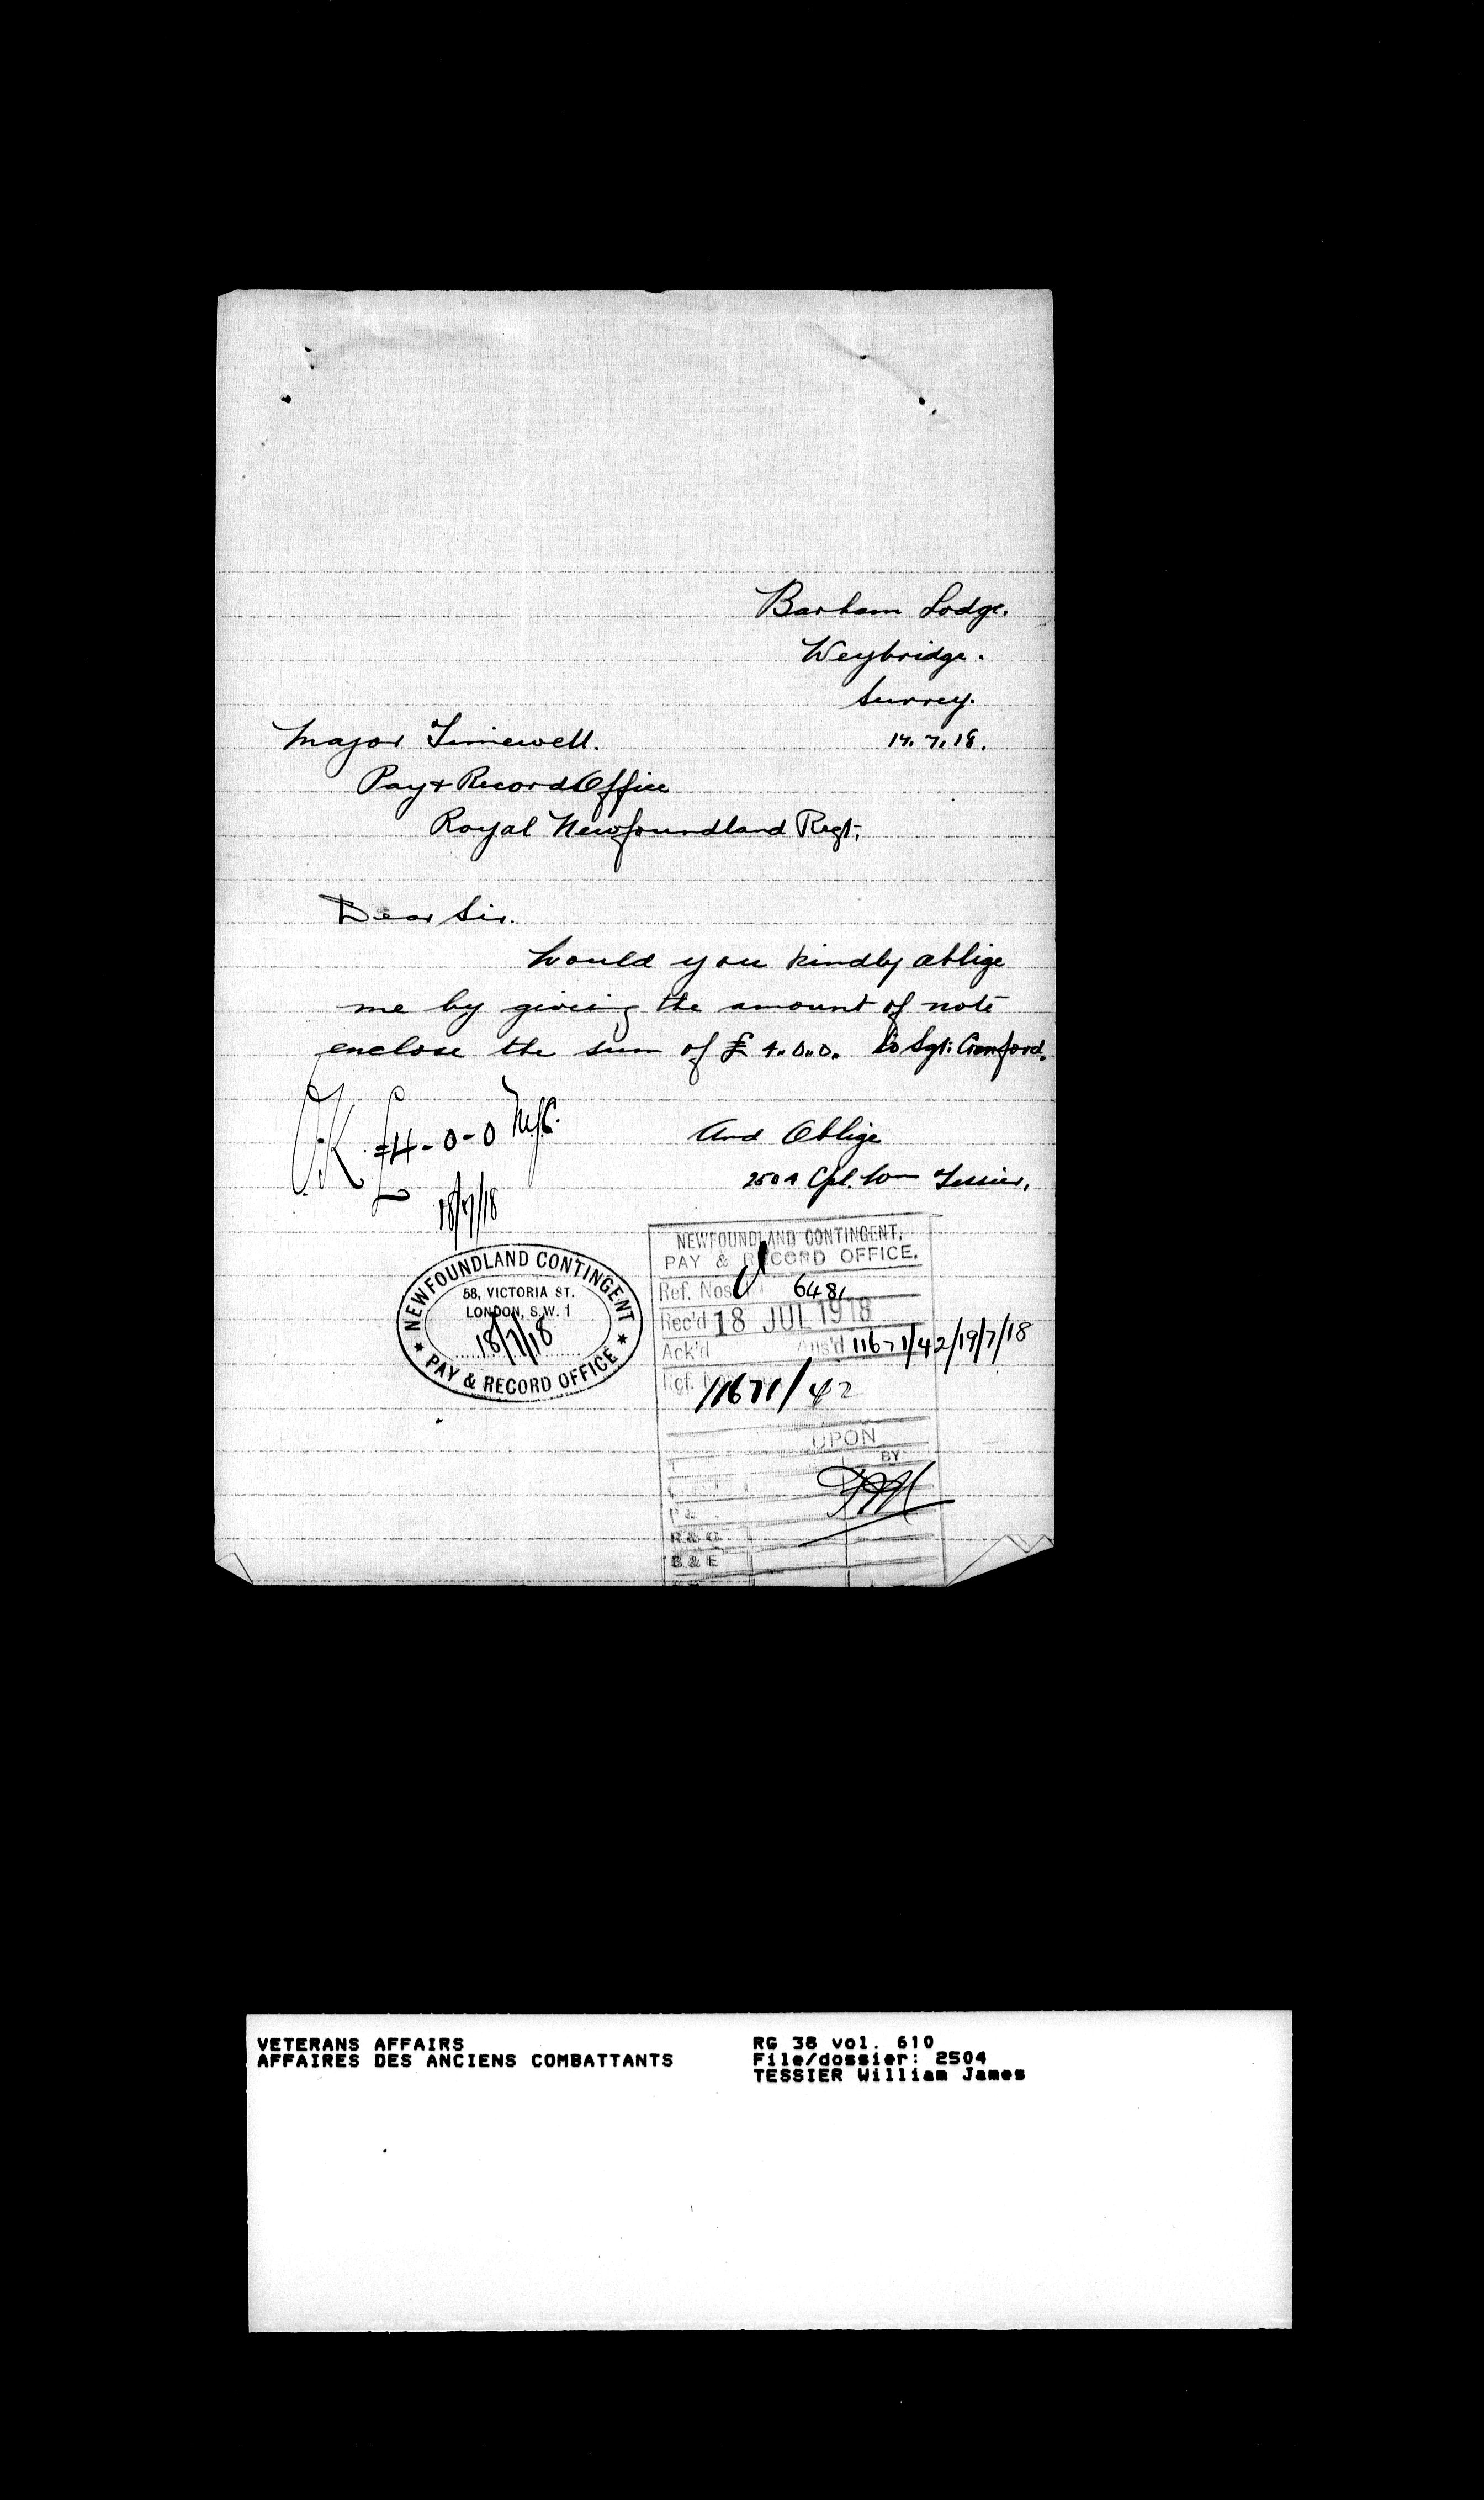 Barham Lodge.
Weybridge.
Surrey.
17.7.18.
Major Timewell.
Pay & Record Office
Royal Newfoundland Regt,
Dear Sir.
Would you kindly oblige
me by giving the amount of note
enclose the sum of £4.0.0. to Sgt: Cranford.
O.K. £4-0-0
18/7/18
And Oblige
2504 Cpl. Wm Tessier,
NEWFOUNDLAND CONTINGENT
58, VICTORIA ST.
LONDON, S.W. 1
18/7/18
PAY & RECORD OFFICE
NEWFOUNDLAND CONTINGENT,
PAY & RECORD OFFICE.
Ref. Nos 6481
Rec'd 18 JUL 1918
Ack'd Ans'd 11671/42/19/7/18
Ref. Nos 11671/42
UPON
BY
P &
R & C
B & E
VETERANS AFFAIRS
AFFAIRES DES ANCIENS COMBATTANTS
RG 38 vol. 610
File/dossier: 2504
TESSIER William James